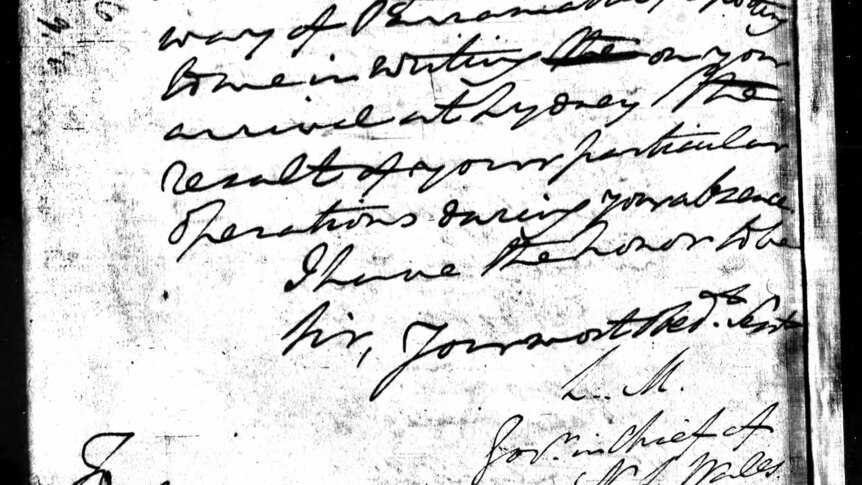 way of Parramatta, reporting
to me in writing the on your
arrival at Sydney the
result of your particular
operations during your absence
I have the honor to be
Sir, Your most Obedt. Servt
L. M.
Govr. in Chief of
N. S. Wales.
To